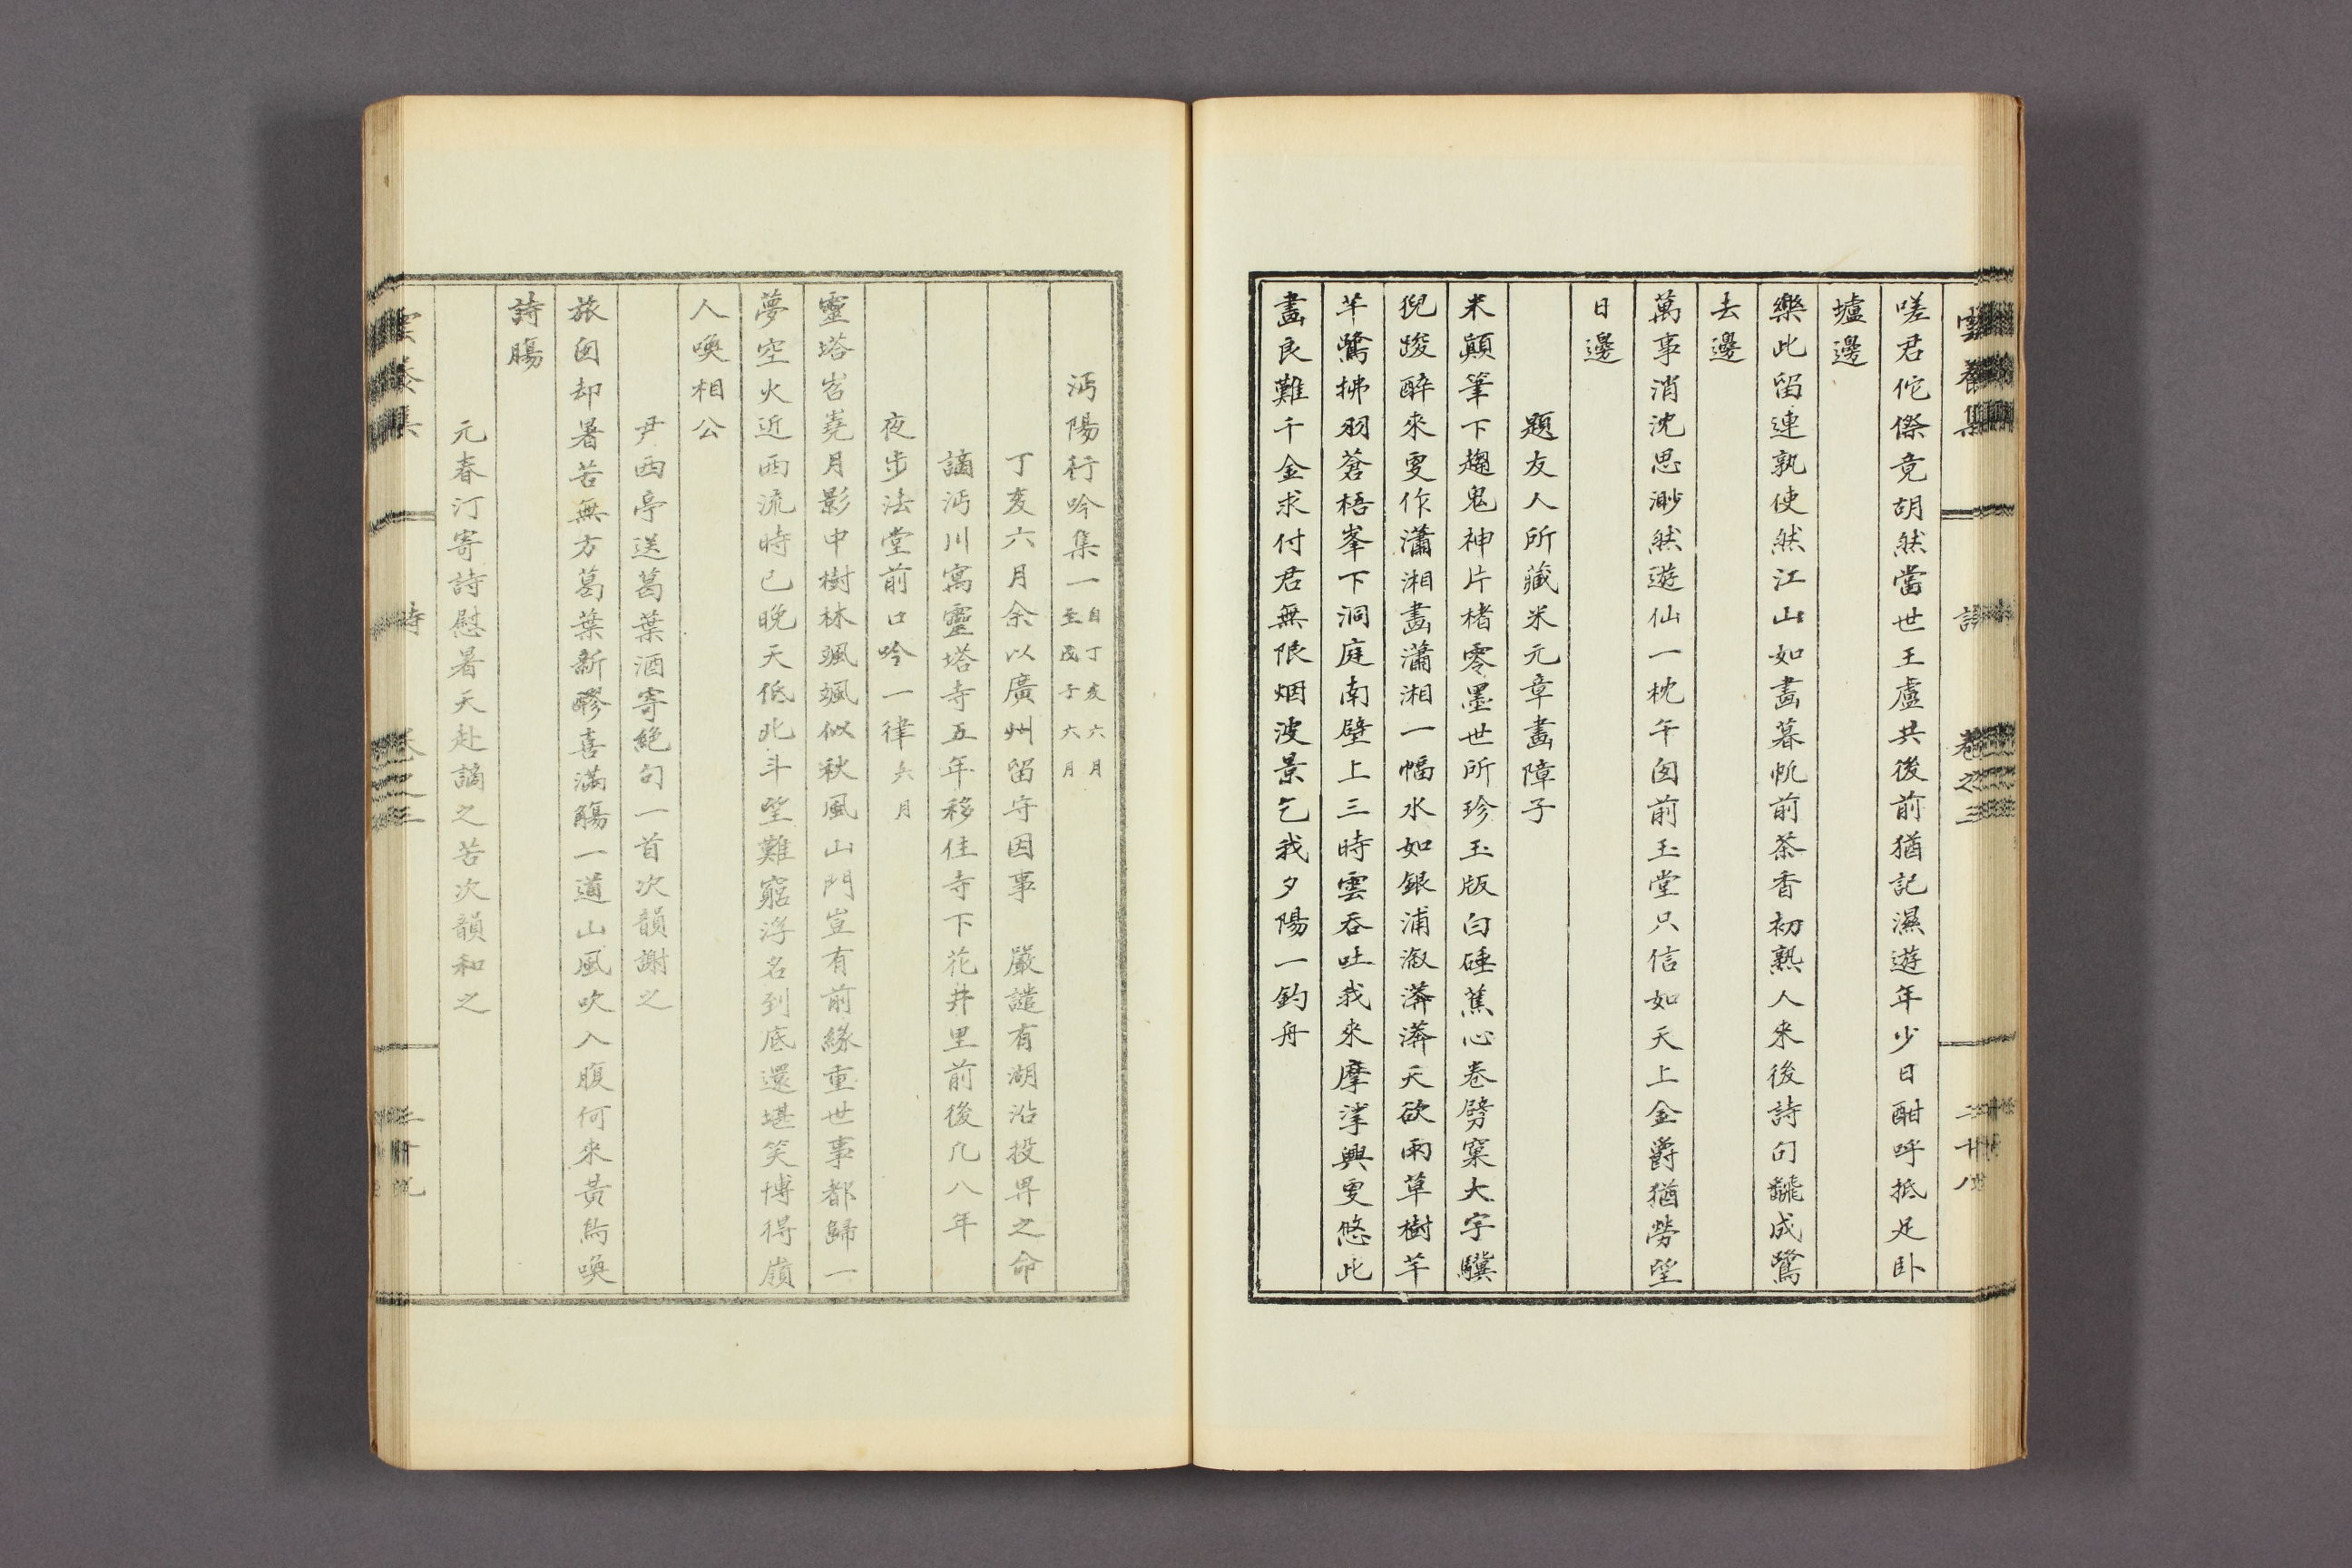 雲養集 詩 卷之三 二十八
嗟君佗傺竟胡然當世王盧共後前猶記濕遊年少日酣呼抵足臥
壚邊
樂此留連孰使然江山如畵暮帆前茶香初熟人來後詩句飜成鷺
去邊
萬事消沈思渺然遊仙一枕午囱前玉堂只信如天上金爵猶勞望
日邊
題友人所藏米元章畵障子
米顚筆下趨鬼神片楮零墨世所珍玉版白硾蕉心卷劈窠大字驥
猊踆醉來更作瀟湘畵瀟湘一幅水如銀浦溆漭漭天欲雨草樹芊
芊鷺拂羽蒼梧峯下洞庭南壁上三時雲呑吐我來摩挲興更悠此
畵良難千金求付君無限烟波景乞我夕陽一釣舟
沔陽行吟集一 自丁亥六月至戊子六月
丁亥六月余以廣州留守因事 嚴譴有湖沿投畀之命
謫沔川寓靈塔寺五年移住寺下花井里前後凡八年
夜步法堂前口吟一律 六月
靈塔岧嶤月影中樹林颯颯似秋風山門豈有前緣重世事都歸一
夢空火近西流時已晚天低北斗望難窮浮名到底還堪笑博得嶺
人喚相公
尹西亭送葛葉酒寄絶句一首次韻謝之
旅囱却暑苦無方葛葉新醪喜滿觴一道山風吹入腹何來黃鳥喚
詩腸
元春汀寄詩慰暑天赴謫之苦次韻和之
雲養集 詩 卷之三 二十九